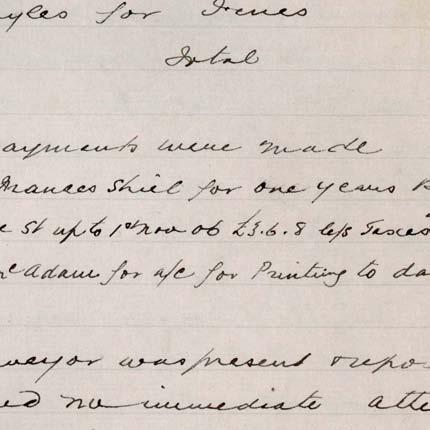 yles for Fines
Total
ayments were made
Frances Shiel for one years R
e St up to 1st Nov 06 £3.6.8 less Taxes
Mc Adam for a/c for Printing to da
veyor was present & repo
ed no immediate atte